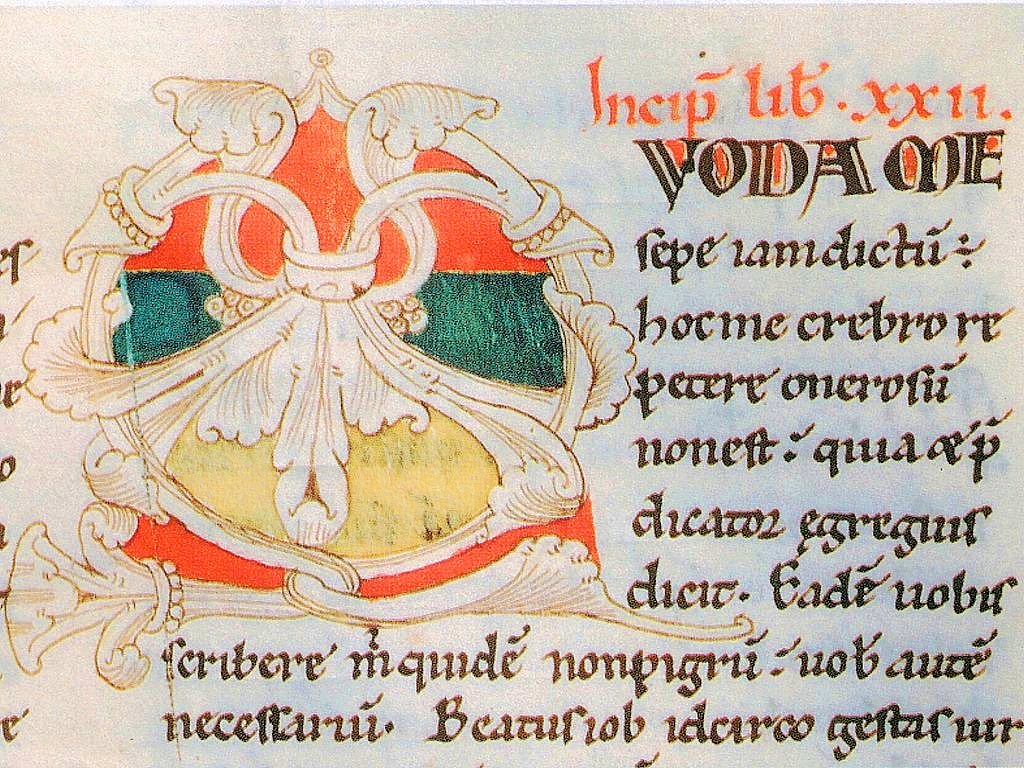 Incip̄ lib̄. xxii.
QVOD A ME
sepe iam dictū ÷
hoc me crebro re
petere onerosū
non est: quia & p̄
dicator ęgregius
dicit. Eadē uobis
scribere mͥ quidē non pigrū: uob̄ autē
necessariū. Beatus iob idcirco gestas uir